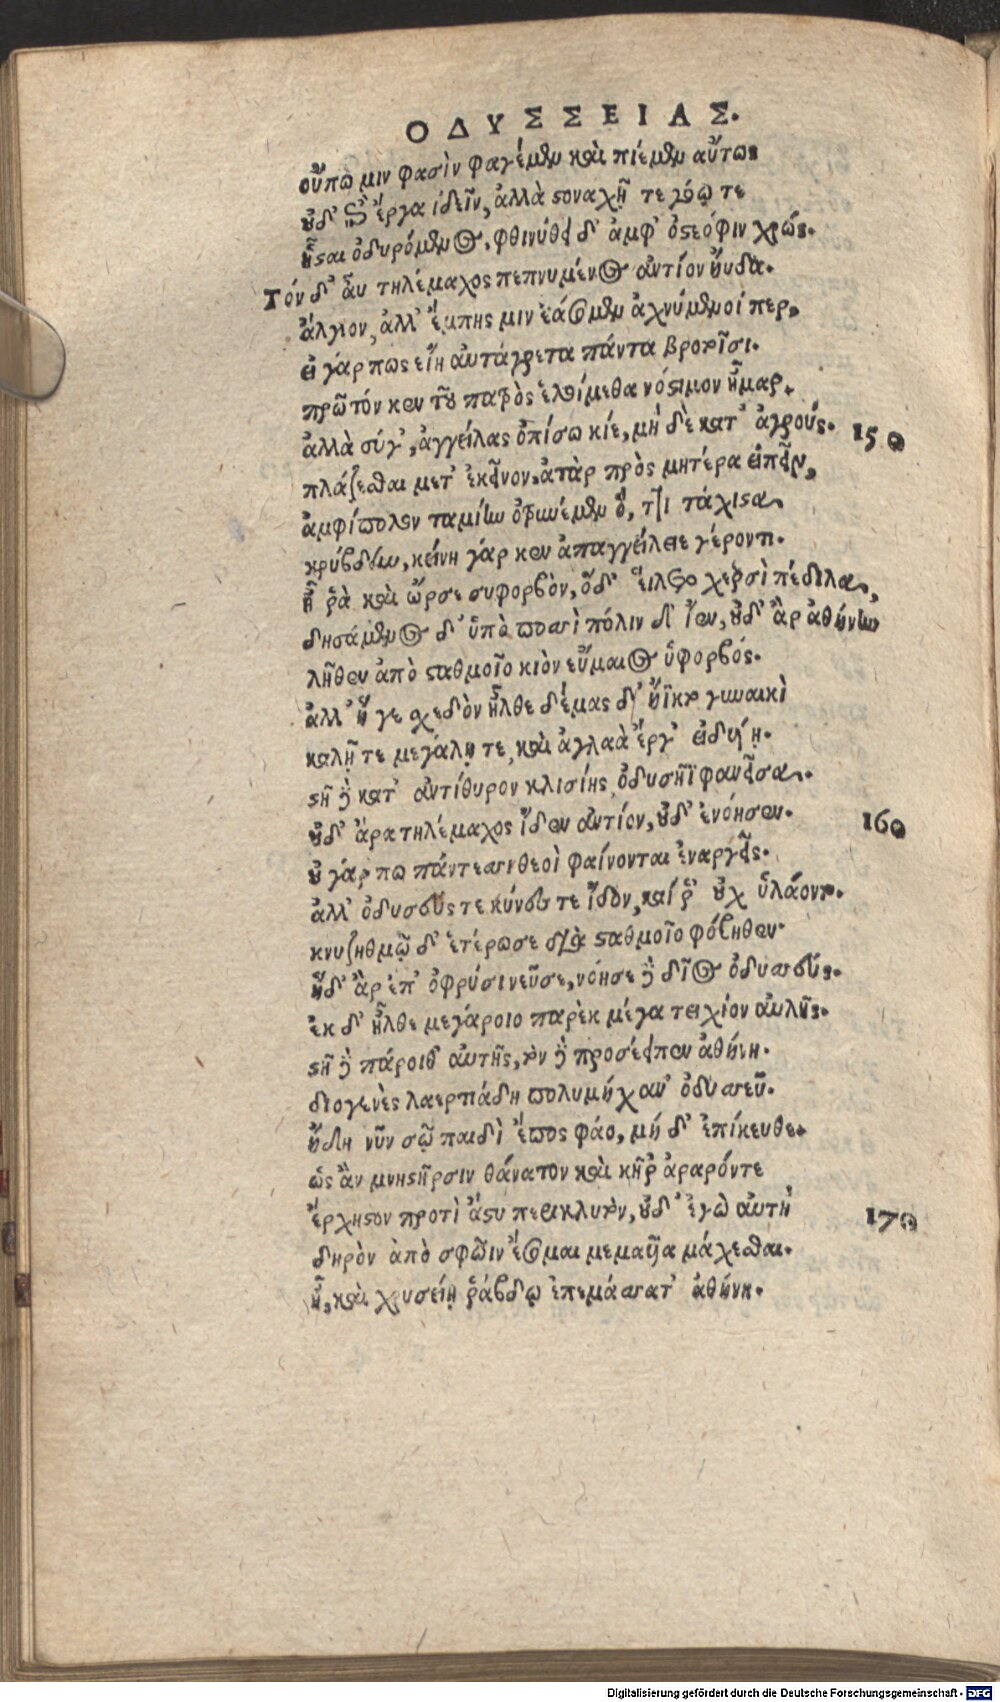 ΟΔΥΣΣΕΙΑΣ.
οὔπω μιν φασὶν φαγέμεν καὶ πιέμεν αὔτως
οὐδ' ἐπὶ ἔργα ἰδεῖν, ἀλλὰ στοναχῇ τε γόῳ τε
ἧσται ὀδυρόμενος, φθινύθει δ' ἀμφ' ὀστεόφιν χρώς.
Τόν δ' αὖ τηλέμαχος πεπνυμένος ἀντίον ηὔδα.
ἄλγιον, ἀλλ' ἔμπης μιν ἐάσομεν ἀχνύμενοί περ,
εἰ γάρ πως εἴη αὐτάγρετα πάντα βροτοῖσι.
πρῶτόν κεν τοῦ πατρὸς ἑλοίμεθα νόστιμον ἦμαρ.
ἀλλὰ σύγ', ἀγγείλας ὀπίσω κίε, μὴ δὲ κατ' ἀγρούς. 150
πλάζεσθαι μετ' ἐκεῖνον, ἀτὰρ πρὸς μητέρα εἰπεῖν,
ἀμφίπολον ταμίην ὀτρυνέμεν ὅ,ττι τάχιστα
κρύβδην, κείνη γάρ κεν ἀπαγγείλειε γέροντι.
ἦ ῥὰ καὶ ὦρσε συφορβὸν, ὅδ' εἵλετο χερσὶ πέδιλα,
δησάμενος δ' ὑπὸ ποσσὶ πόλιν δ' ἴεν, οὐδ' ἂρ ἀθήνην
λῆθεν ἀπὸ σταθμοῖο κιὸν εὔμαιος ὑφορβός.
ἀλλ' ἥ γε σχεδὸν ἦλθε δέμας δ' ἤϊκτο γυναικὶ
καλῇ τε μεγάλῃ τε, καὶ ἀγλαὰ ἔργ' εἰδυίῃ.
στῆ δὲ κατ' ἀντίθυρον κλισίης ὀδυσῆϊ φανεῖσα.
οὐδ' ἄρα τηλέμαχος ἴδεν ἀντίον, οὐδ' ἐνόησεν. 160
οὐ γάρ πω πάντεσσι θεοὶ φαίνονται ἐναργεῖς.
ἀλλ' ὀδυσεύς τε κύνες τε ἴδον, καί ῥ' οὐχ ὑλάοντο.
κνυζηθμῷ δ' ἑτέρωσε διὰ σταθμοῖο φόβηθεν.
ἥδ' ἂρ ἐπ' ὀφρύσι νεῦσε, νόησε δὲ δῖος ὀδυσσεύς.
ἐκ δ' ἦλθε μεγάροιο παρὲκ μέγα τειχίον αὐλῆς.
στῆ δὲ πάροιθ' αὐτῆς, τὸν δὲ προσέειπεν ἀθήνη.
διογενὲς λαερτιάδη πολυμήχαν' ὀδυσσεῦ.
ἤδη νῦν σῷ παιδὶ ἔπος φάο, μή δ' ἐπίκευθε.
ὡς ἂν μνηστῆρσιν θάνατον καὶ κῆρ' ἀραρόντε
ἔρχησθον προτὶ ἄστυ περικλυτὸν, οὐδ' ἐγὼ αὐτὴ 170
δηρὸν ἀπὸ σφῶϊν ἔσομαι μεμαυῖα μάχεσθαι.
ἦ, καὶ χρυσείῃ ῥάβδῳ ἐπεμάσσατ' ἀθήνη.